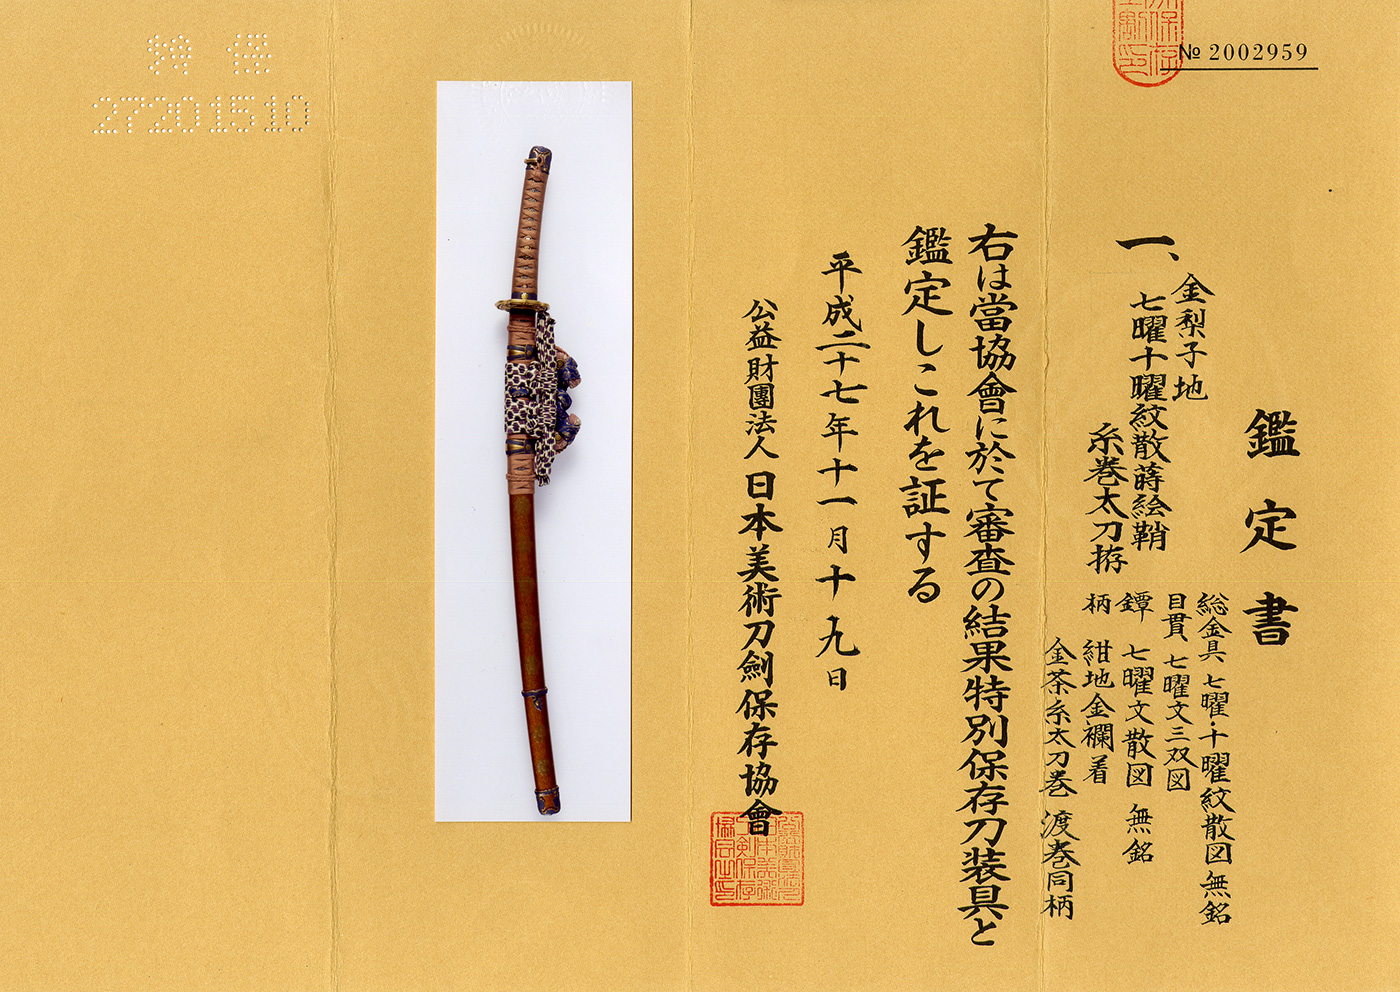 № 2002959
鑑定書
一、
金梨子地
七曜十曜紋散蒔絵鞘
糸巻太刀拵
総金具 七曜・十曜紋散図 無銘
目貫 七曜文三双図
鐔 七曜文散図 無銘
柄 紺地金襴着
金茶糸太刀巻 渡巻同柄
右は當協會に於て審査の結果特別保存刀装具と
鑑定しこれを証する
平成二十七年十一月十九日
公益財團法人 日本美術刀劍保存協會
特 保
27201510